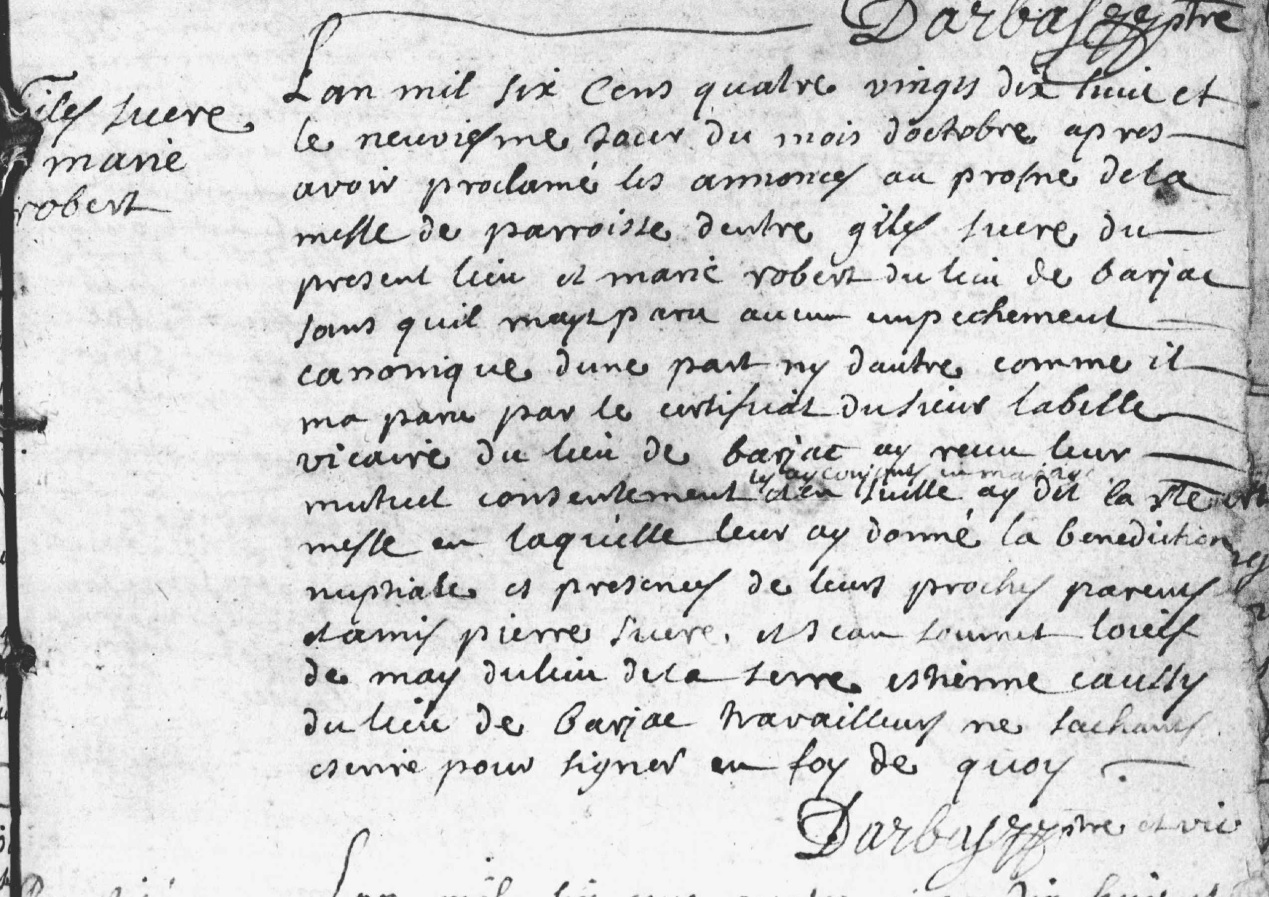 Darbas ptre
Giles suere
marie
robert
Lan mil six cens quatre vingts dix huit et
le neuviesme jour du mois doctobre apres
avoir proclamé les annonces au prosne dela
messe de parroisse dentre giles suere du
present lieu et marie robert du lieu de barjac
sans quil maye paru aucun empechement
canonique dune part ny dautre comme il
ma paru par le certificat du sieur labille
vicaire du lieu de barjac ay receu leur
les ay conjoints en mariage
mutuel consentement et en suitte ay dit la ste
messe en laquelle leur ay donné la benediction
nuptiale et presences de leurs proches parents
et amis pierre suere, et jean sounet
de may du lieu de la serre estienne caussy
du lieu de barjac travailleurs ne sachants
escrire pour signer en foy de quoy
Darbas ptre et vic
Lan mil six cens quatre vingts dix huit et